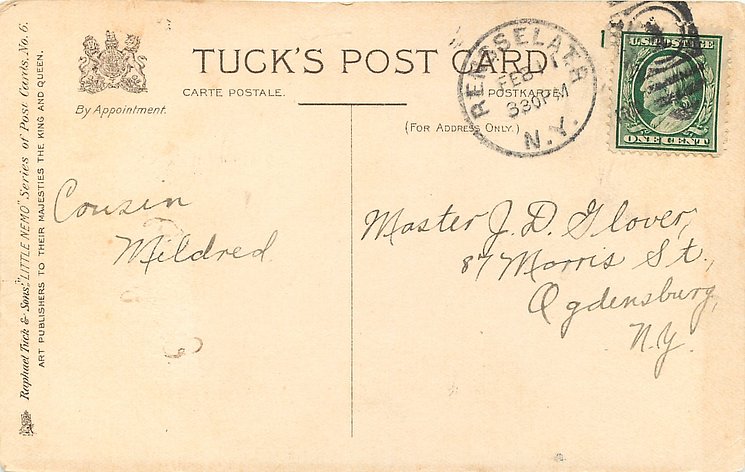 TUCK'S POST CARD
CARTE POSTALE.
POSTKARTE
(FOR ADDRESS ONLY.)
By Appointment.
RENSSELAER
FEB
330PM
N.Y.
U.S. POSTAGE
ONE CENT
Raphael Tuck & Sons' "LITTLE NEMO" Series of Post Cards. No. 6.
ART PUBLISHERS TO THEIR MAJESTIES THE KING AND QUEEN.
Cousin
Mildred
Master J. D. Glover,
87 Morris St.,
Ogdensburg,
N.Y.